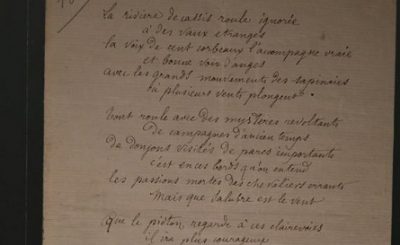 La rivière de cassis roule ignorée
à des vaux étranges
la voix de cent corbeaux l'accompagne vraie
et bonne voix d'anges
avec les grands mouvements des sapinaies
où plusieurs vents plongent.
Tout roule avec des mystères révoltants
De campagnes d'ancien temps
de donjons visités de parcs importants
c'est en ces bords qu'on entend
les passions mortes des chevaliers errants
Mais que salubre est le vent
Que le piéton regarde à ces clairevoies
il ira plus courageux